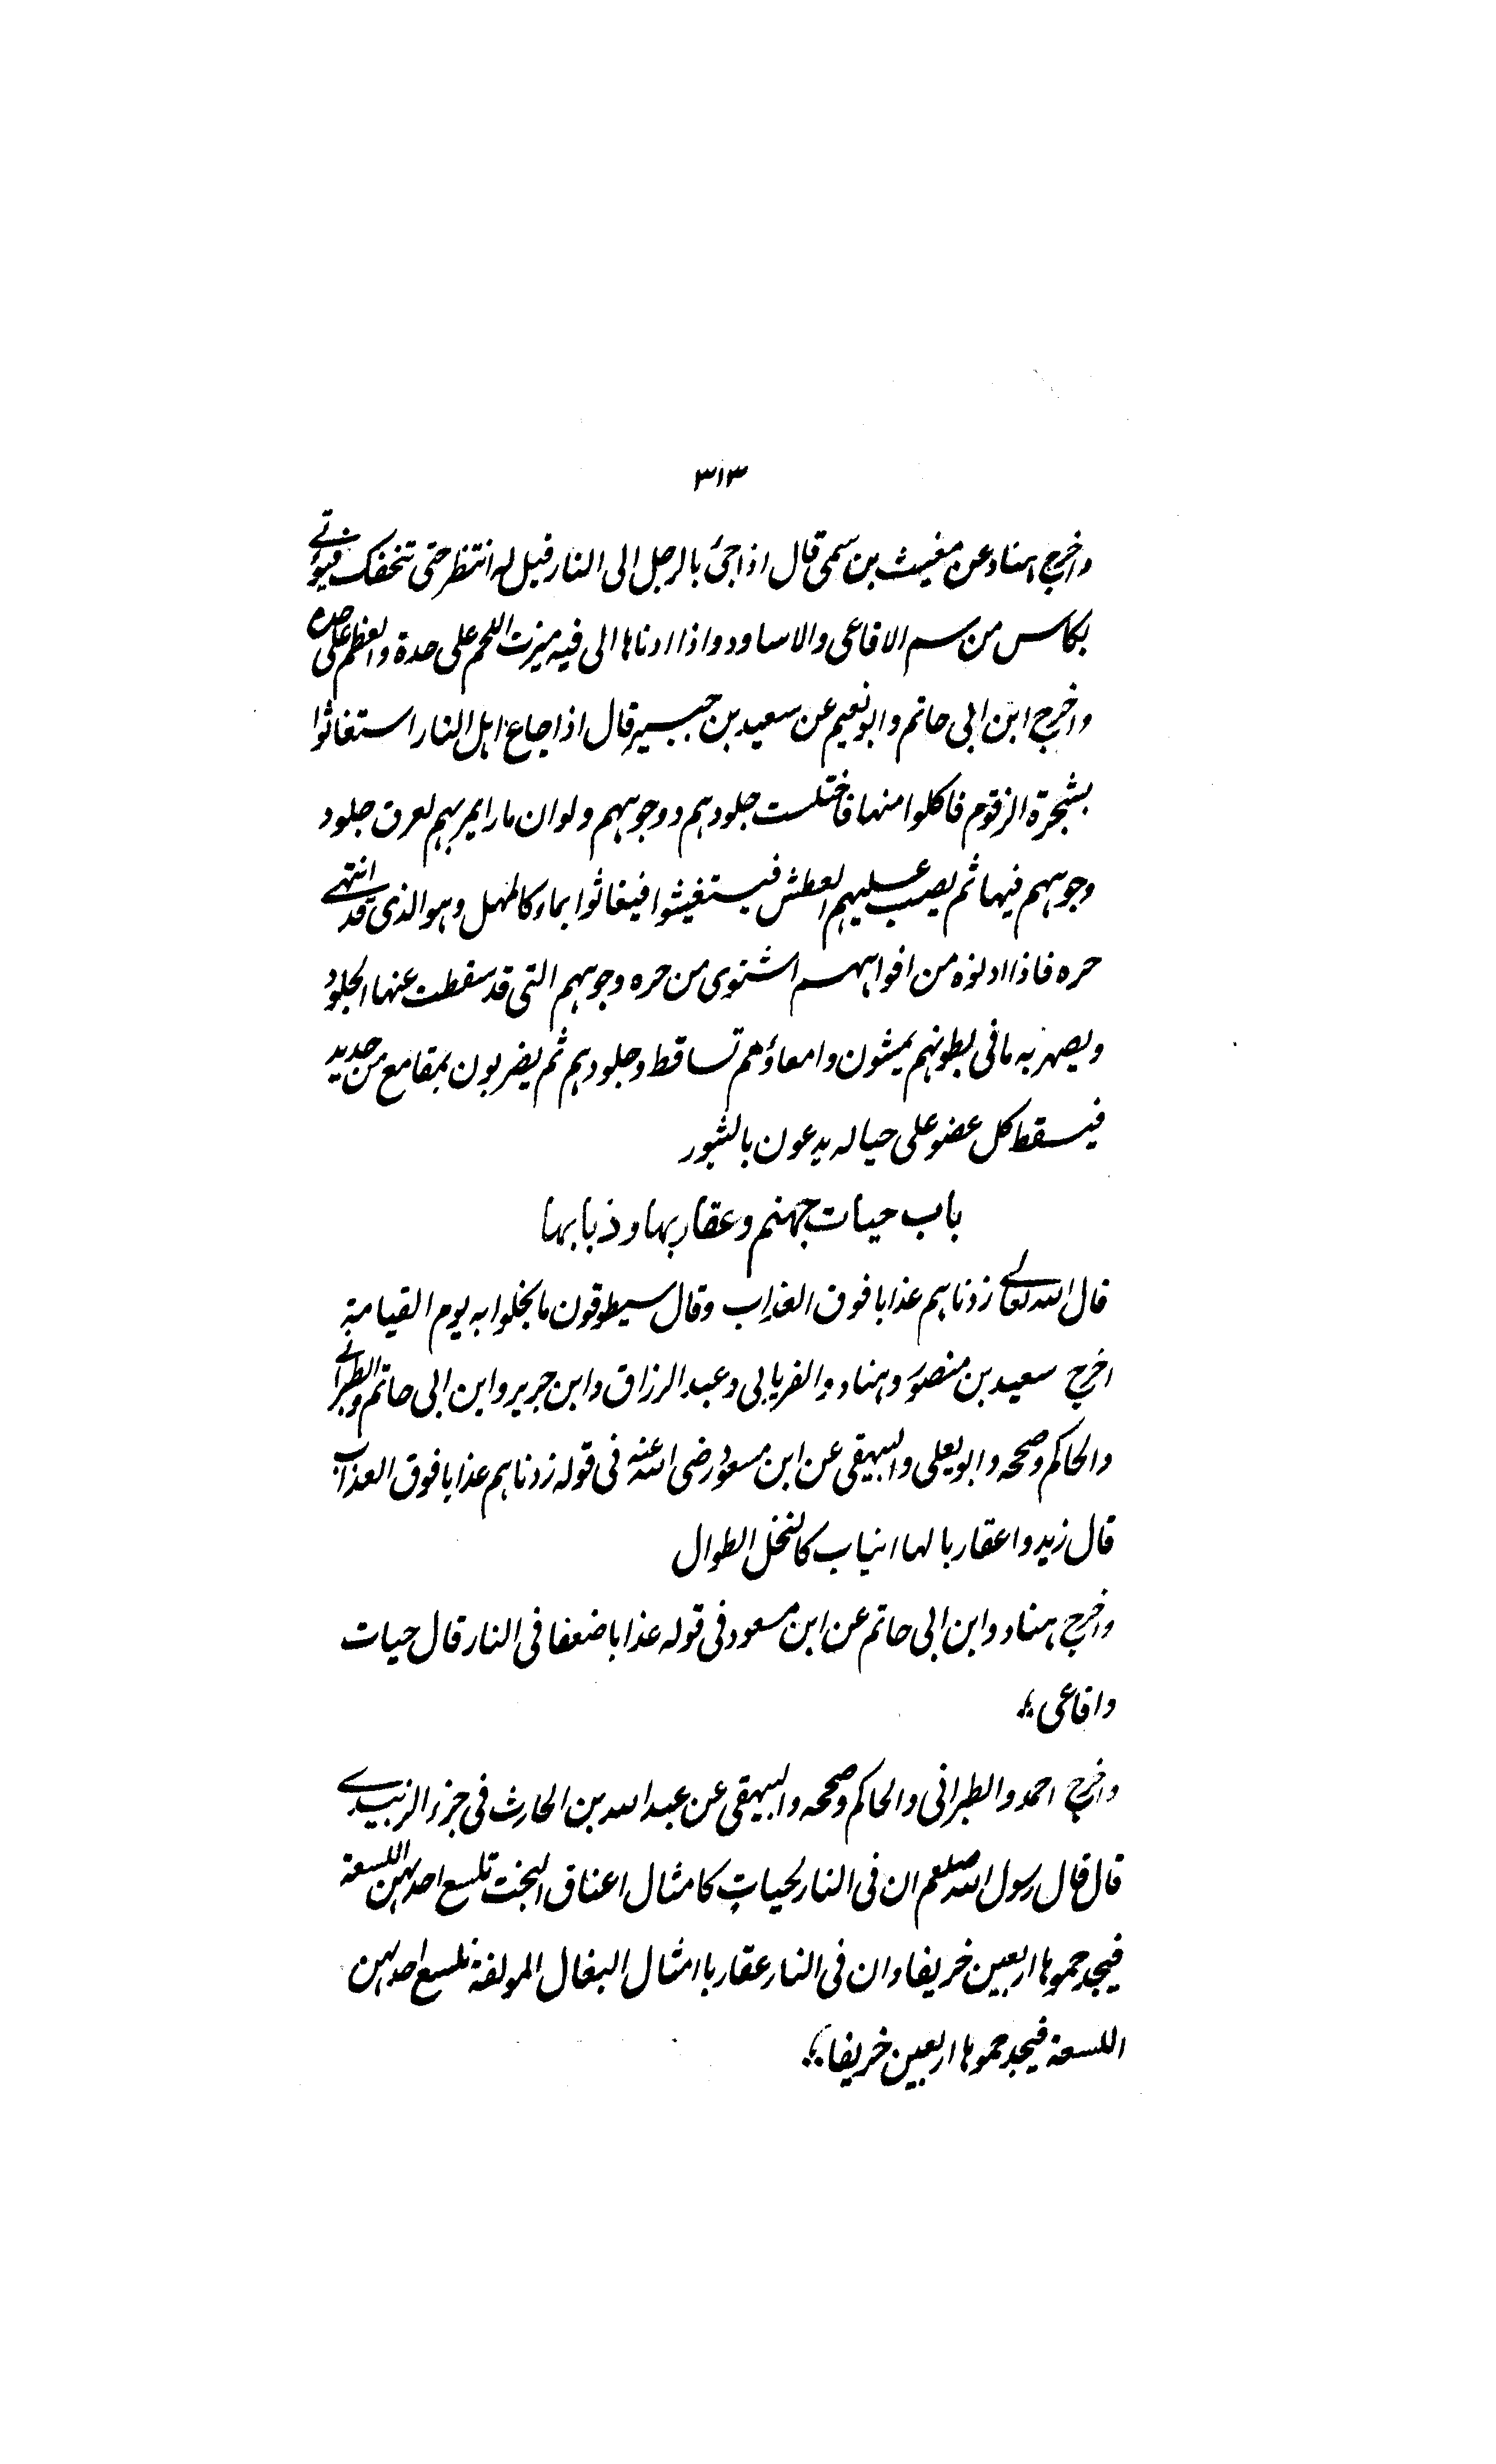 ٣١٣
واخرج هناد عن مغيث بن سمى قال اذا جئ بالرجل الى النار قيل له انتظر حتى نتحفك فيؤتے
بكاس من سم الافاعى والاساود واذا ادناها الى فيه ميزت اللحم على حدة والعظم على حدة
واخرج ابن ابى حاتم وابو نعيم عن سعيد بن جبير قال اذا جاع اهل النار استغاثوا
بشجرة الزقوم فاكلوا منها فاختلست جلودهم ووجوههم ولو ان مارا يمر بهم لعرف جلود
وجوههم فيها ثم يصب عليهم العطش فيستغيثوا فيغاثوا بماء كالمهل وهو الذى قد انتهے
حره فاذا ادنوه من افواههم اشتوى من حره وجوههم التى قد سقطت عنها الجلود
ويصهر به ما فى بطونهم يمشون وامعاؤهم تساقط وجلودهم ثم يضربون بمقامع من حديد
فيسقط كل عضو على حياله يدعون بالثبور
باب حيات جهنم وعقاربها وذبابها
قال الله تعالے زدناهم عذابا فوق العذاب وقال سيطوقون ما بخلوا به يوم القيامة
اخرج سعيد بن منصور وهناد والفريابى وعبد الرزاق وابن جرير وابن ابى حاتم والطبرانے
والحاكم وصححه وابو يعلى والبيهقى عن ابن مسعود رضى الله عنه فى قوله زدناهم عذابا فوق العذاب
قال زيدوا عقاربا لها انياب كالنخل الطوال
واخرج هناد وابن ابى حاتم عن ابن مسعود فى قوله عذابا ضعفا فى النار قال حيات
وافاعى
واخرج احمد والطبرانى والحاكم وصححه والبيهقى عن عبد الله بن الحارث فى جزء الزبيدے
قال قال رسول الله صلعم ان فى النار لحيات كامثال اعناق البخت تلسع احدهن اللسعة
فيجد حموها اربعين خريفا وان فى النار عقاربا امثال البغال المولفة تلسع احدهن
اللسعة فيجد حموها اربعين خريفا